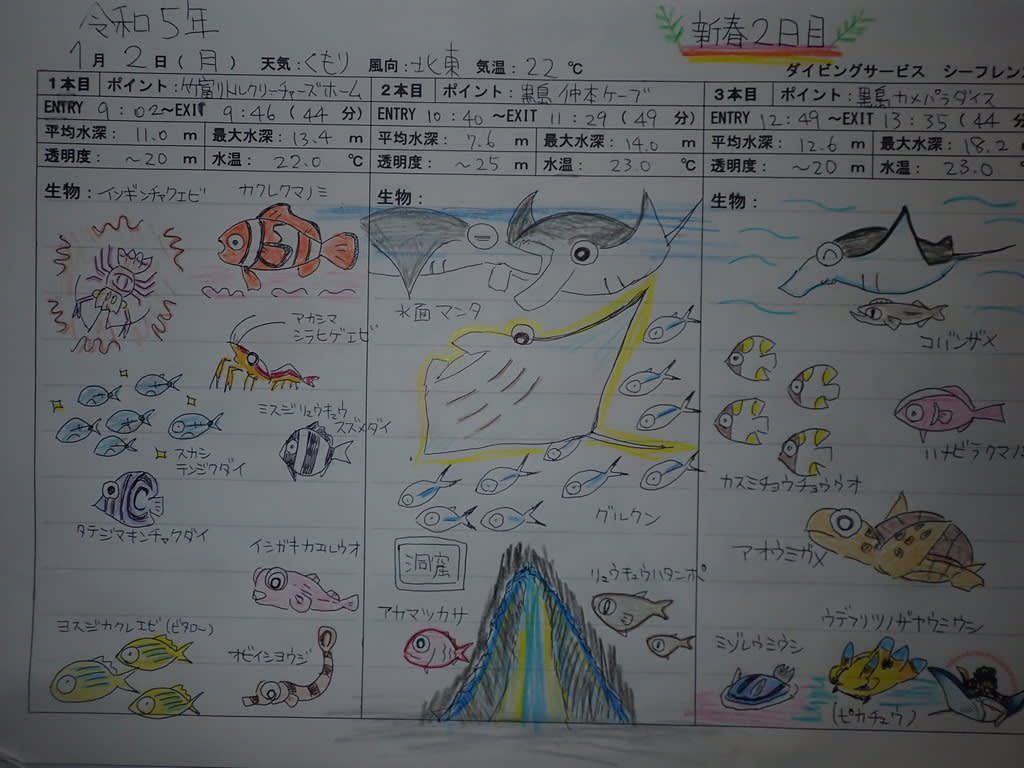 令和5年
新春2日目
1月2日(月) 天気:くもり 風向:北東 気温:22℃
ダイビングサービス シーフレン
1本目 ポイント:竹富リトルクリーチャーズホーム
ENTRY 9:02~EXIT 9:46 (44分)
平均水深: 11.0 m 最大水深: 13.4 m
透明度: ~20 m 水温: 22.0 ℃
生物:イソギンチャクエビ
カクレクマノミ
アカシマ
シラヒゲエビ
ミスジリュウキュウ
スズメダイ
スカシ
テンジクダイ
タテジマキンチャクダイ
イシガキカエルウオ
ヨスジカクレエビ(ビタロー)
オビイシヨウジ
2本目 ポイント:黒島 仲本ケーブ
ENTRY 10:40 ~EXIT 11:29 (49分)
平均水深: 7.6 m 最大水深: 14.0 m
透明度: ~25 m 水温: 23.0 ℃
生物:
水面マンタ
グルクン
洞窟
リュウキュウハタンポ
アカマツカサ
3本目 ポイント:黒島 カメパラダイス
ENTRY 12:49 ~EXIT 13:35 (44分
平均水深: 12.6 m 最大水深: 18.2 m
透明度: ~20 m 水温: 23.0
生物:
コバンザメ
ハナビラクマノミ
カスミチョウチョウウオ
アオウミガメ
ウデフリツノザヤウミウシ
ミゾレウミウシ
(ピカチュウ)